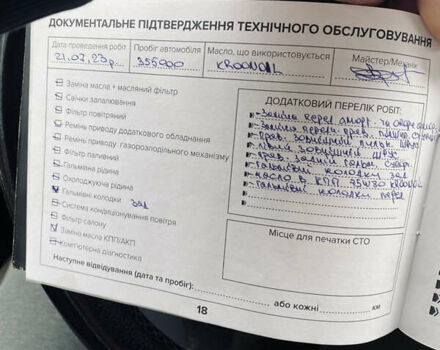 ДОКУМЕНТАЛЬНЕ ПІДТВЕРДЖЕННЯ ТЕХНІЧНОГО ОБСЛУГОВУВАННЯ
Дата проведення робіт
Пробіг автомобіля
Масло, що використовується
Майстер/Механік
21.07.23р.
355900
KROONOIL
Заміна масла + масляний фільтр
Свічки запалювання
Фільтр повітряний
Ремінь приводу додаткового обладнання
Ремінь приводу газорозподільного механізму
Фільтр паливний
Гальмівна рідина
Охолоджуюча рідина
Гальмівні колодки зад
Система кондиціонування повітря
Фільтр салону
Заміна масла КПП/АКП
Комп'ютерна діагностика
Наступне відвідування (дата та пробіг):
або кожні
км
ДОДАТКОВИЙ ПЕРЕЛІК РОБІТ:
Заміна перед аморт. та опора
Заміна перед. прав.
Прав. зовнішній
Лівий зовнішній шрус
Прав. задній гальм. суп.
Гальмівні колодки зад
масло в КПП 75W90 KROONOIL
Гальмівні колодки перед
Місце для печатки СТО
18